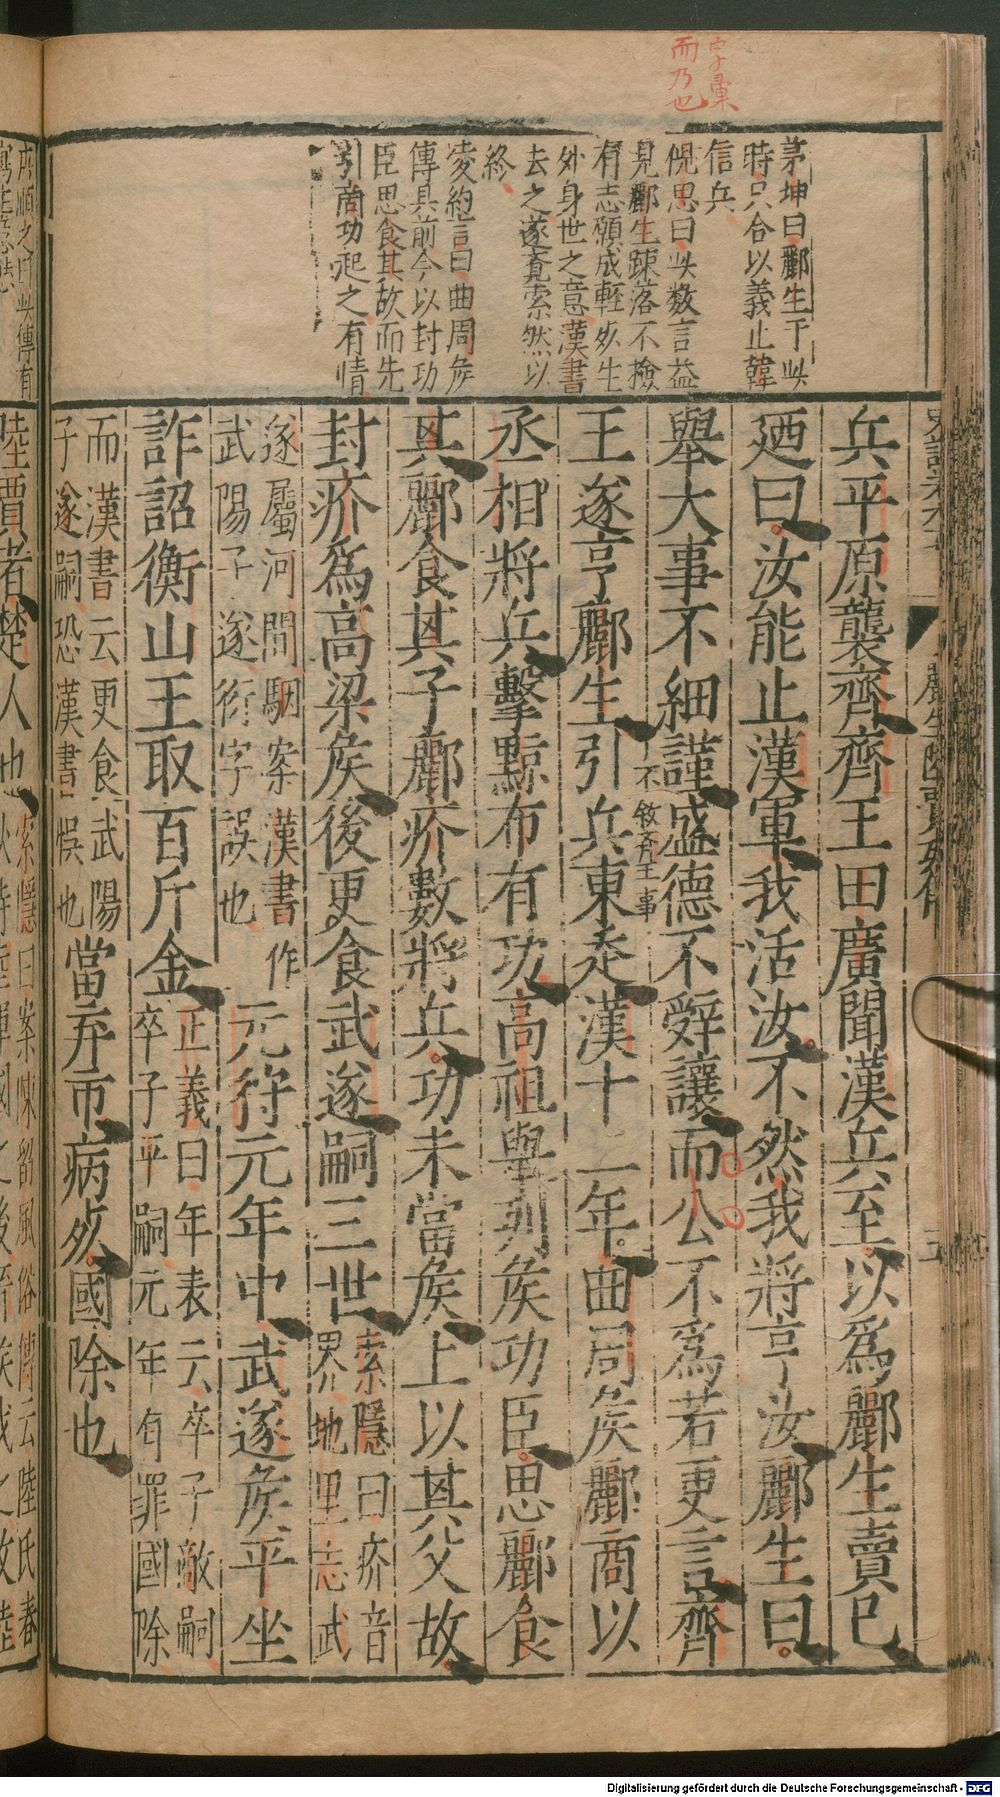 字彙
而乃也
茅坤曰酈生于此
時只合以義止韓
信兵
倪思曰此數言益
見酈生踈落不檢
有志願成輕死生
外身世之意漢書
去之遂覺索然以
終
凌約言曰曲周矦
傳具前今以封功
臣思食其故而先
引商功起之有情
兵平原襲齊齊王田廣聞漢兵至以爲酈生賣已
廼曰汝能止漢軍我活汝不然我將亨汝酈生曰
舉大事不細謹盛德不辭讓而公不爲若更言齊
不敘齊王事
王遂亨酈生引兵東走漢十二年曲周矦酈商以
丞相將兵擊黥布有功高祖舉列矦功臣思酈食
其酈食其子酈疥數將兵功未當矦上以其父故
封疥爲高梁矦後更食武遂嗣三世索隱曰疥音界地里志武
遂屬河間駰案漢書作武陽子遂衍字誤也元狩元年中武遂矦平坐
詐詔衡山王取百斤金正義曰年表云卒子敵嗣卒子平嗣元年有罪國除
而漢書云更食武陽子遂嗣恐漢書悞也當弃市病死國除也
陸賈者楚人也索隱曰案陳留風俗傳云陸氏春
史記卷九十
酈生陸賈列傳
五
Digitalisierung gefördert durch die Deutsche Forschungsgemeinschaft - DFG